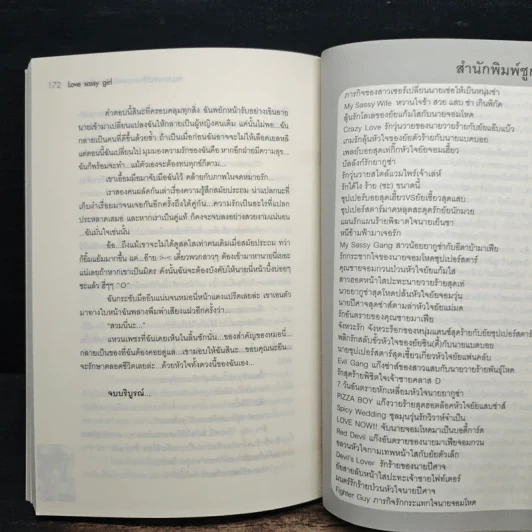 172 Love sassy girl
คำตอบนี้สินะที่ครอบคลุมทุกสิ่ง ฉันพยักหน้ารับอย่างเขินอาย
นายเข้ามาเปลี่ยนแปลงฉันให้กลายเป็นผู้หญิงคนเดิม แต่นั่นไม่พอ...ฉัน
กลายเป็นคนที่ดีขึ้นด้วยซ้ำ ถ้าเป็นเมื่อก่อนฉันอาจจะไม่ให้เลือดเยลหลี
แต่ตอนนี้ฉันเปลี่ยนไป มุมมองความรักของฉันคือ หากอีกฝ่ายมีความสุข...
ฉันก็พร้อมจะทำ... แม้ตัวเองจะต้องทนทุกข์ก็ตาม...
เขาเอื้อมมือมาจับมือฉันไว้ คล้ายกับภาพในจดหมายรัก
เราสองคนผลัดกันเล่าเรื่องความรู้สึกสมัยประถม น่าแปลกนะที่
เก็บงำเรื่องมาจนเจอกันอีกครั้งถึงได้คู่กัน... ความรักเป็นอะไรที่แปลก
ประหลาดเสมอ และหากเราเป็นคู่แท้ ก็คงจะจบลงอย่างสวยงามแน่นอน
...ฉันมั่นใจเช่นนั้น
อ้อ...ถึงแม้เขาจะไม่ได้ดูสดใสเท่าคนเดิมเมื่อสมัยประถม ทว่า
ก็ยิ้มแย้มมากขึ้น แต่...อ๊าย >-< เดี๋ยวพวกสาวๆ ต้องเข้ามาหานายนี่เยอะ
แน่เลยถ้าหากเขาเป็นมิตร ดังนั้นฉันจะต้องบังคับให้นายนี่หน้าบึ้งบ่อยๆ
ซะแล้ว ฮึๆๆ ^O^
ฉันกระชับมือยืนแน่นจนหมอนี่หน้าแดงแปร๊ดเลยล่ะ เขาเอนตัว
มาจากใบหน้าฉันพลางพึมพำเสียงแผ่วอีกครั้งว่า...
"สวมนี่นะ..."
แหวนเพชรที่ฉันเคยเห็นในลิ้นชักนั่น...ของสำคัญของหมอนี่...
กลายเป็นของที่ฉันต้องคอยดูแล...เขามอบให้ฉันสินะ...ขอบคุณนะยีน...
จะรักษาตลอดชีวิตเลยล่ะ...ด้วยหัวใจทั้งดวงนี้ของฉันเอง...
จบบริบูรณ์...
สำนักพิมพ์ซูก
ภารกิจของสาวเซอร์เปลี่ยนนายเซ่อให้เป็นหนุ่มซ่า
My Sassy Wife หวานใจซ้า สวย แสบ ซ่า เกินพิกัด
ลุ้นรักโลเลของยัยแก้มใสกับนายจอมโหด
Crazy Love รักวุ่นวายของนายวายร้ายกับยัยแอ๊บแบ๊ว
เกมรักลุ้นหัวใจของยัยตัวร้ายกับนายแบดบอย
เพลย์บอยสุดเท่กิ๊กหัวใจยัยจอมเฮี้ยว
บัลลังก์รักยากูซ่า
รักวุ่นวายสไตล์แวมไพร์เจ้าเล่ห์
รักได้ไง ร้าย (ซะ) ขนาดนี้
ซุปเปอร์บอยสุดเฮี้ยวVSยัยเซี้ยวสุดแสบ
ซุปเปอร์สตาร์มาดหลุดสะดุดรักยัยนักมวย
แผนรักแผนร้ายพิฆาตใจนายเย็นชา
หนีร้ายมาเจอรัก
My Sassy Gang สาวน้อยยากูซ่ากับอีตาบ้ามาเฟีย
รักกระชากใจของนายจอมโหดซุปเปอร์สตาร์
คุณชายจอมกวนป่วนหัวใจยัยแก้มใส
สาวฮอตหน้าใสปะทะนายวายร้ายสุดเท่
นายยากูซ่าสุดโหดปล้นหัวใจยัยจอมวุ่น
นายปีศาจสุดซ่าส์ตามล่าหัวใจยัยแม่มด
รักอันตรายของคุณชายมาเฟีย
จังหวะรัก จังหวะร็อกของหนุ่มแดนซ์สุดร้ายกับยัยซุปเปอร์สตาร์
พลิกรักสลับขั้วหัวใจของยัยซิน(เดี้)กับนายแบดบอย
นายซุปเปอร์สตาร์สุดเซี้ยวเกี่ยวหัวใจยัยแฟนคลับ
Evil Gang แก๊งซ่าของสาวแสบกับนายวายร้ายพันธุ์โหด
รักสุดร้ายพิชิตใจเจ้าชายคลาส D
7 วันอันตรายหักเหลี่ยมหัวใจนายยากูซ่า
PIZZA BOY แก๊งวายร้ายสุดฮอตล็อคหัวใจยัยแสบซ่าส์
Spicy Wedding ชุลมุนวุ่นรักวิวาห์จำเป็น
LOVE NOW!! จับนายจอมโหดมาเป็นบอดี้การ์ด
Red Devil แก๊งอันตรายของนายมาเฟียจอมกวน
ชลวนหัวใจกามเทพหน้าใสกับยัยตัวเล็ก
Devil's Lover รักร้ายของนายปีศาจ
ยัยสายลับหน้าใสปะทะเจ้าชายไฟท์เตอร์
มนตร์รักร้ายป่วนหัวใจนายปีศาจ
Fighter Guy ภารกิจรักกระแทกใจนายจอมโหด